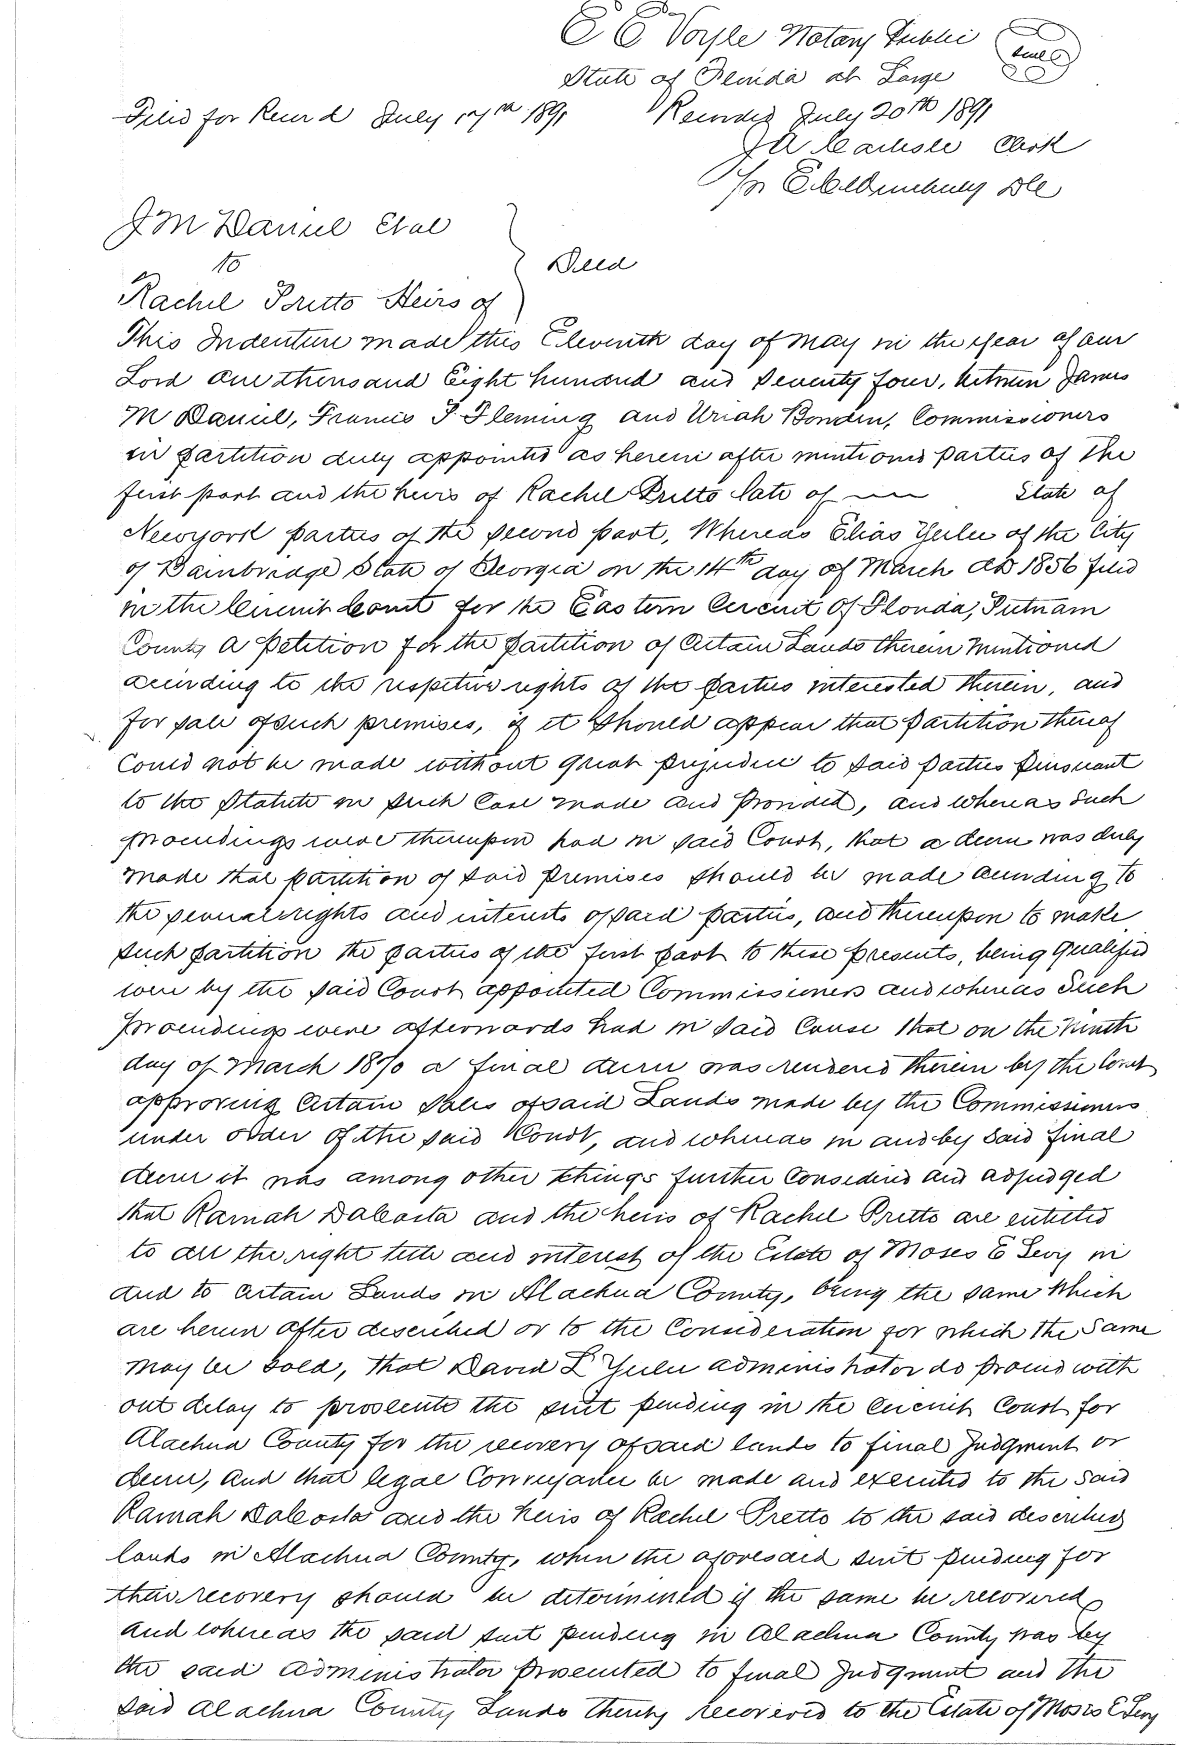 E E Voyle Notary Public
Seal
State of Florida at Large
Filed for Record July 17th 1891
Recorded July 20th 1891
J A Carlisle Clerk
Per DC
J M Daniel Etal
to
Deed
Rachel Pretto Heirs of
This Indenture made this Eleventh day of May in the year of our
Lord One thousand Eight hundred and Seventy four, between James
M Daniel, Francis P Fleming and Uriah Bowden, Commissioners
in partition duly appointed as herein after mentioned parties of the
first part and the heirs of Rachel Pretto late of State of
Newyork parties of the second part, Whereas Elias Yulee of the City
of Bainbridge State of Georgia on the 14th day of March AD 1856 filed
in the Circuit Court for the Eastern Circuit Of Florida, Putnam
County A petition for the partition of Certain Lands therein mentioned
according to the respective rights of the parties interested therein, and
for sale of such premises, if it should appear that partition thereof
Could not be made without great prejudice to said parties pursuant
to the Statute in such Case made and provided, and whereas Such
proceedings were thereupon had in said Court, that a decree was duly
made that partition of said premises should be made according to
the several rights and interests of said parties, and thereupon to make
such partition the parties of the first part to these presents, being qualified
were by the said Court appointed Commissioners and whereas Such
proceedings were afterwards had in said Cause that on the Ninth
day of March 1870 a final decree was rendered therein by the Court
approving Certain Sales of said Lands made by the Commissioners
under order of the said Court, and whereas in and by said final
decree it was among other things further Considered and adjudged
that Ramah DaCosta and the heirs of Rachel Pretto are entitled
to all the right title and interest of the Estate of Moses E Levy in
and to Certain Lands in Alachua County, being the same Which
are herein after described or to the Consideration for which the Same
may be sold, that David L Yulee administrator do proceed with
out delay to prosecute the suit pending in the Circuit Court for
Alachua County for the recovery of said lands to final Judgment or
decree, and that legal Conveyance be made and executed to the Said
Ramah DaCosta and the heirs of Rachel Pretto to the said described
lands in Alachua County, when the aforesaid suit pending for
their recovery should be determined if the same be recovered
and whereas the said suit pending in Alachua County was by
the said Administrator prosecuted to final Judgment and the
said Alachua County Lands thereby recovered to the Estate of Moses E Levy